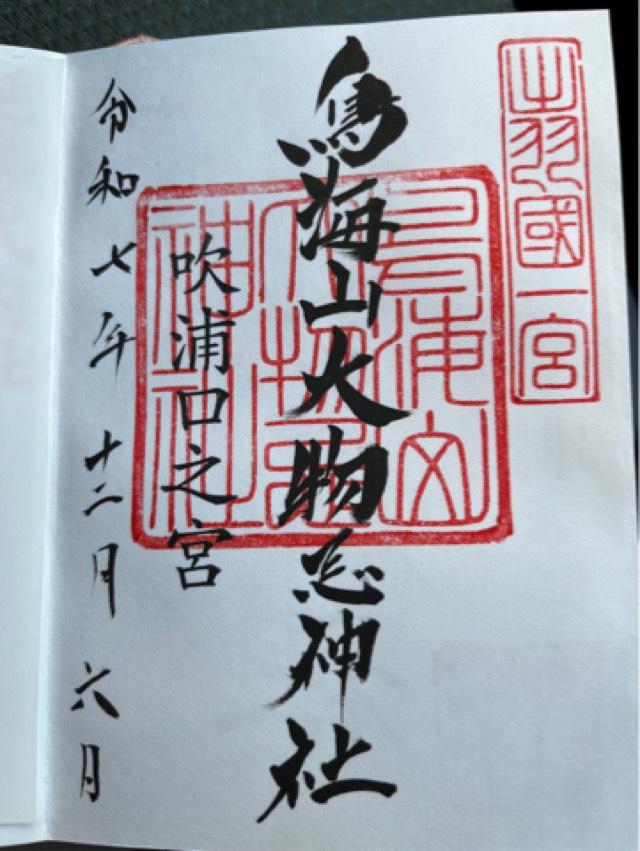 出羽國一宮
鳥海山大物忌神社
鳥海山
大物忌
神社
吹浦口之宮
令和七年十二月六日